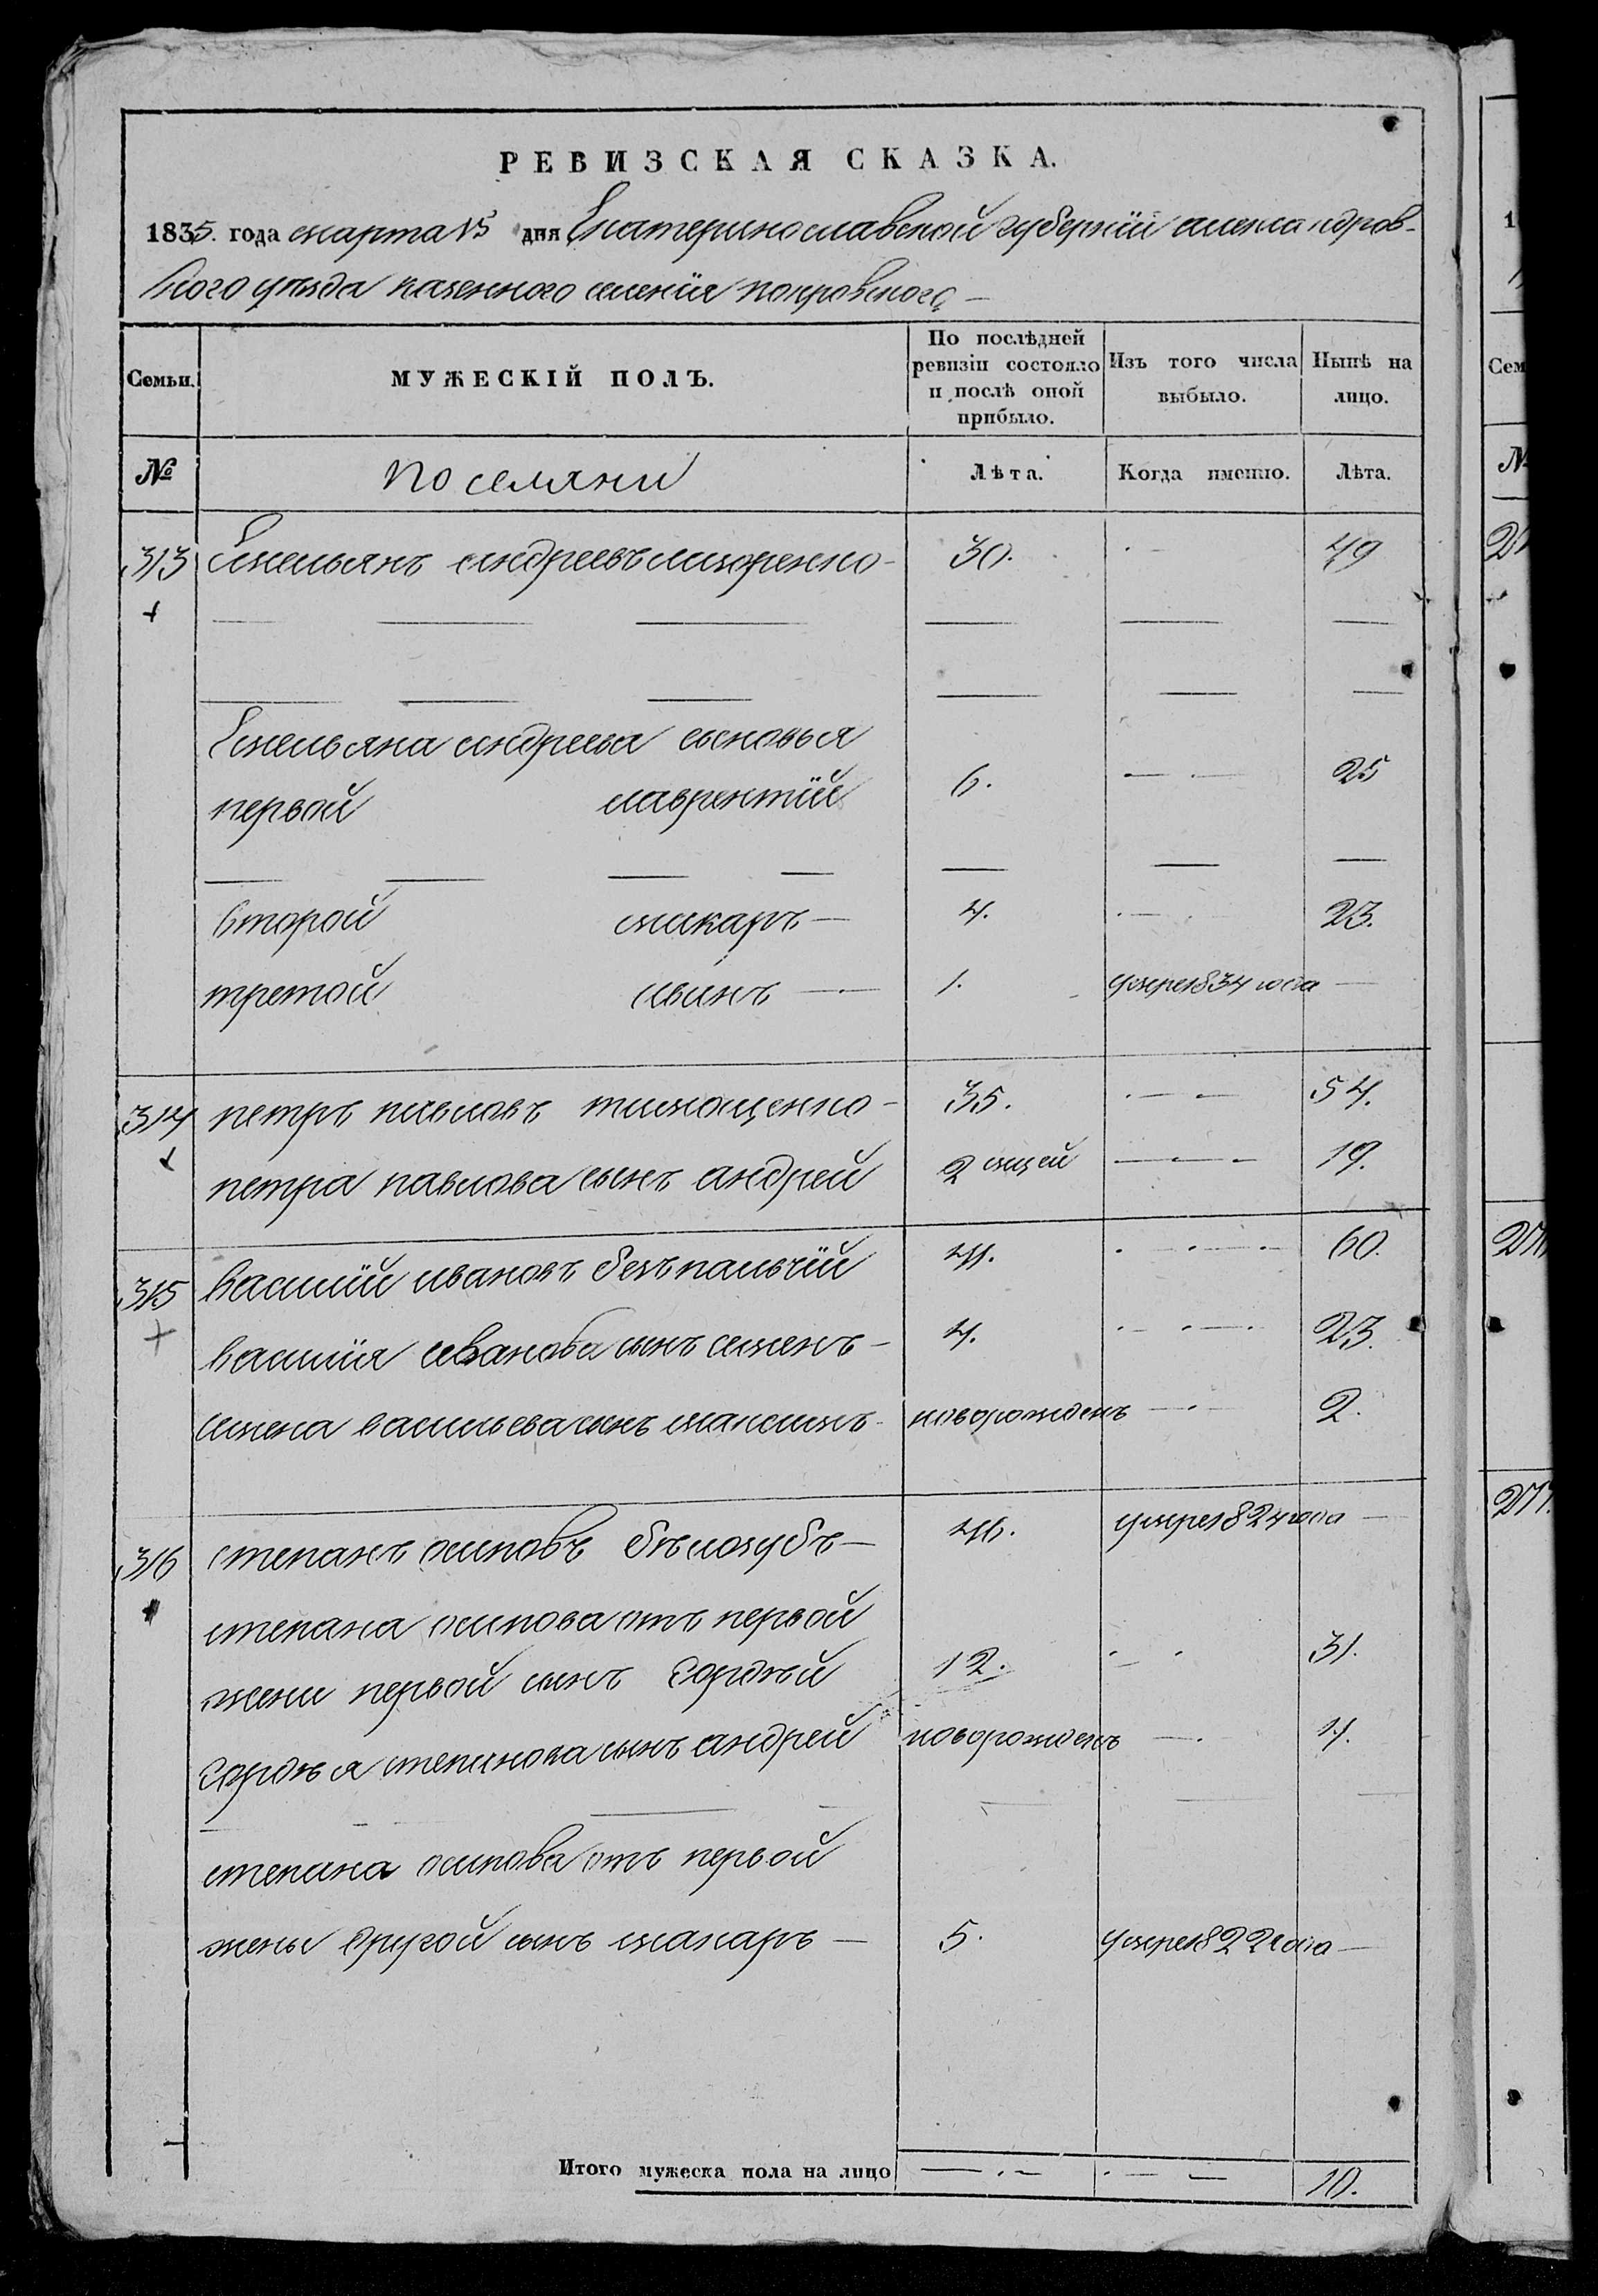 РЕВИЗСКАЯ СКАЗКА.
1835. года марта 15 дня Екатеринославской губернии александров-
ского уезда казенного селения покровского
Семьи. МУЖЕСКІЙ ПОЛЪ. По послѣдней ревизіи состояло и послѣ оной прибыло. Изъ того числа выбыло. Нынѣ на лицо.
№ поселяни Лѣта. Когда именно. Лѣта.
313 Емельянъ андреевъ 30. 49
Емельяна андреева сыновья
первой лаврентій 6. 25
второй макаръ 4. 23.
третой иванъ 1. умре 1834 года
314 петръ павловъ тимощенко 35. 54.
петра павлова сынъ андрей 2 мцей 19.
315 василій ивановъ безпальчій 41. 60.
василія иванова сынъ семенъ 4. 23.
семена васильева сынъ максимъ новорожденъ 2.
316 степанъ осиповъ бѣлозубъ 46. умре 1824 года
степана осипова отъ первой
жени первой сынъ гордѣй 12. 31.
гордѣя степанова сынъ андрей новорожденъ 4.
степана осипова отъ первой
жены другой сынъ макаръ 5. умре 1822 года
Итого мужеска пола на лицо 10.